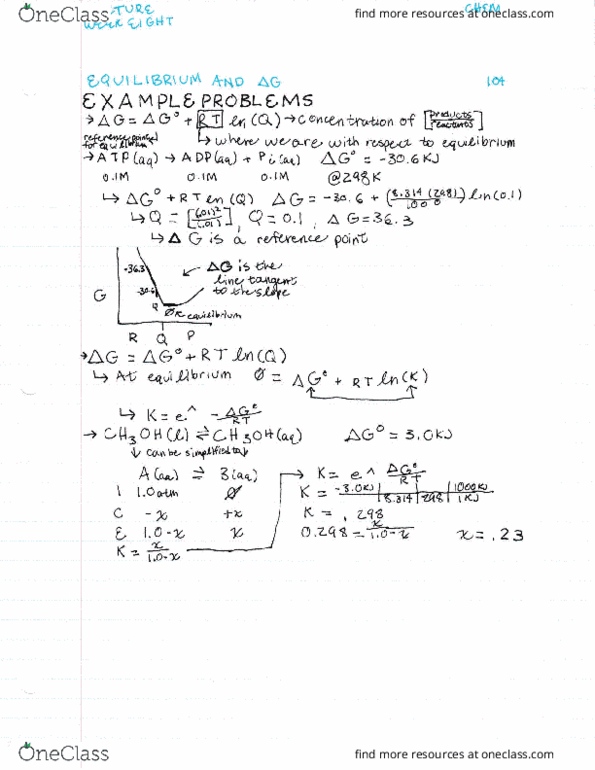 OneClass
find more resources at oneclass.com
TURE
CHEM
WEEK EIGHT
EQUILIBRIUM AND ΔG
104
EXAMPLE PROBLEMS
→ΔG = ΔG° + RT ln(Q) → concentration of [products/reactants]
reference point for equilibrium
↳ where we are with respect to equilibrium
→ATP(aq) → ADP(aq) + Pi(aq) ΔG° = -30.6 KJ
0.1M 0.1M 0.1M @298K
↳ ΔG° + RT ln(Q) ΔG = -30.6 + (8.314 (298)/1000) ln(0.1)
↳ Q = [(.01)²/(.01)], Q = 0.1, ΔG = 36.3
↳ Δ G is a reference point
-36.3
ΔG is the
line tangent
to the slope
-30.6
G
equilibrium
R Q P
→ΔG = ΔG° + RT ln(Q)
↳ At equilibrium Ø = ΔG° + RT ln(K)
↳ K = e^ -ΔG°/RT
→ CH3OH(l) ⇌ CH3OH(aq) ΔG° = 3.0KJ
↓ can be simplified to
A(aq) ⇌ B(aq)
→ K = e^ ΔG°/RT
I 1.0atm Ø
K = -3.0KJ | | | 1000KJ / | 8.314 | 298 | 1KJ
C -x +x
K = .298
E 1.0-x x
0.298 = x/1.0-x x = .23
K = x/1.0-x
OneClass
find more resources at oneclass.com